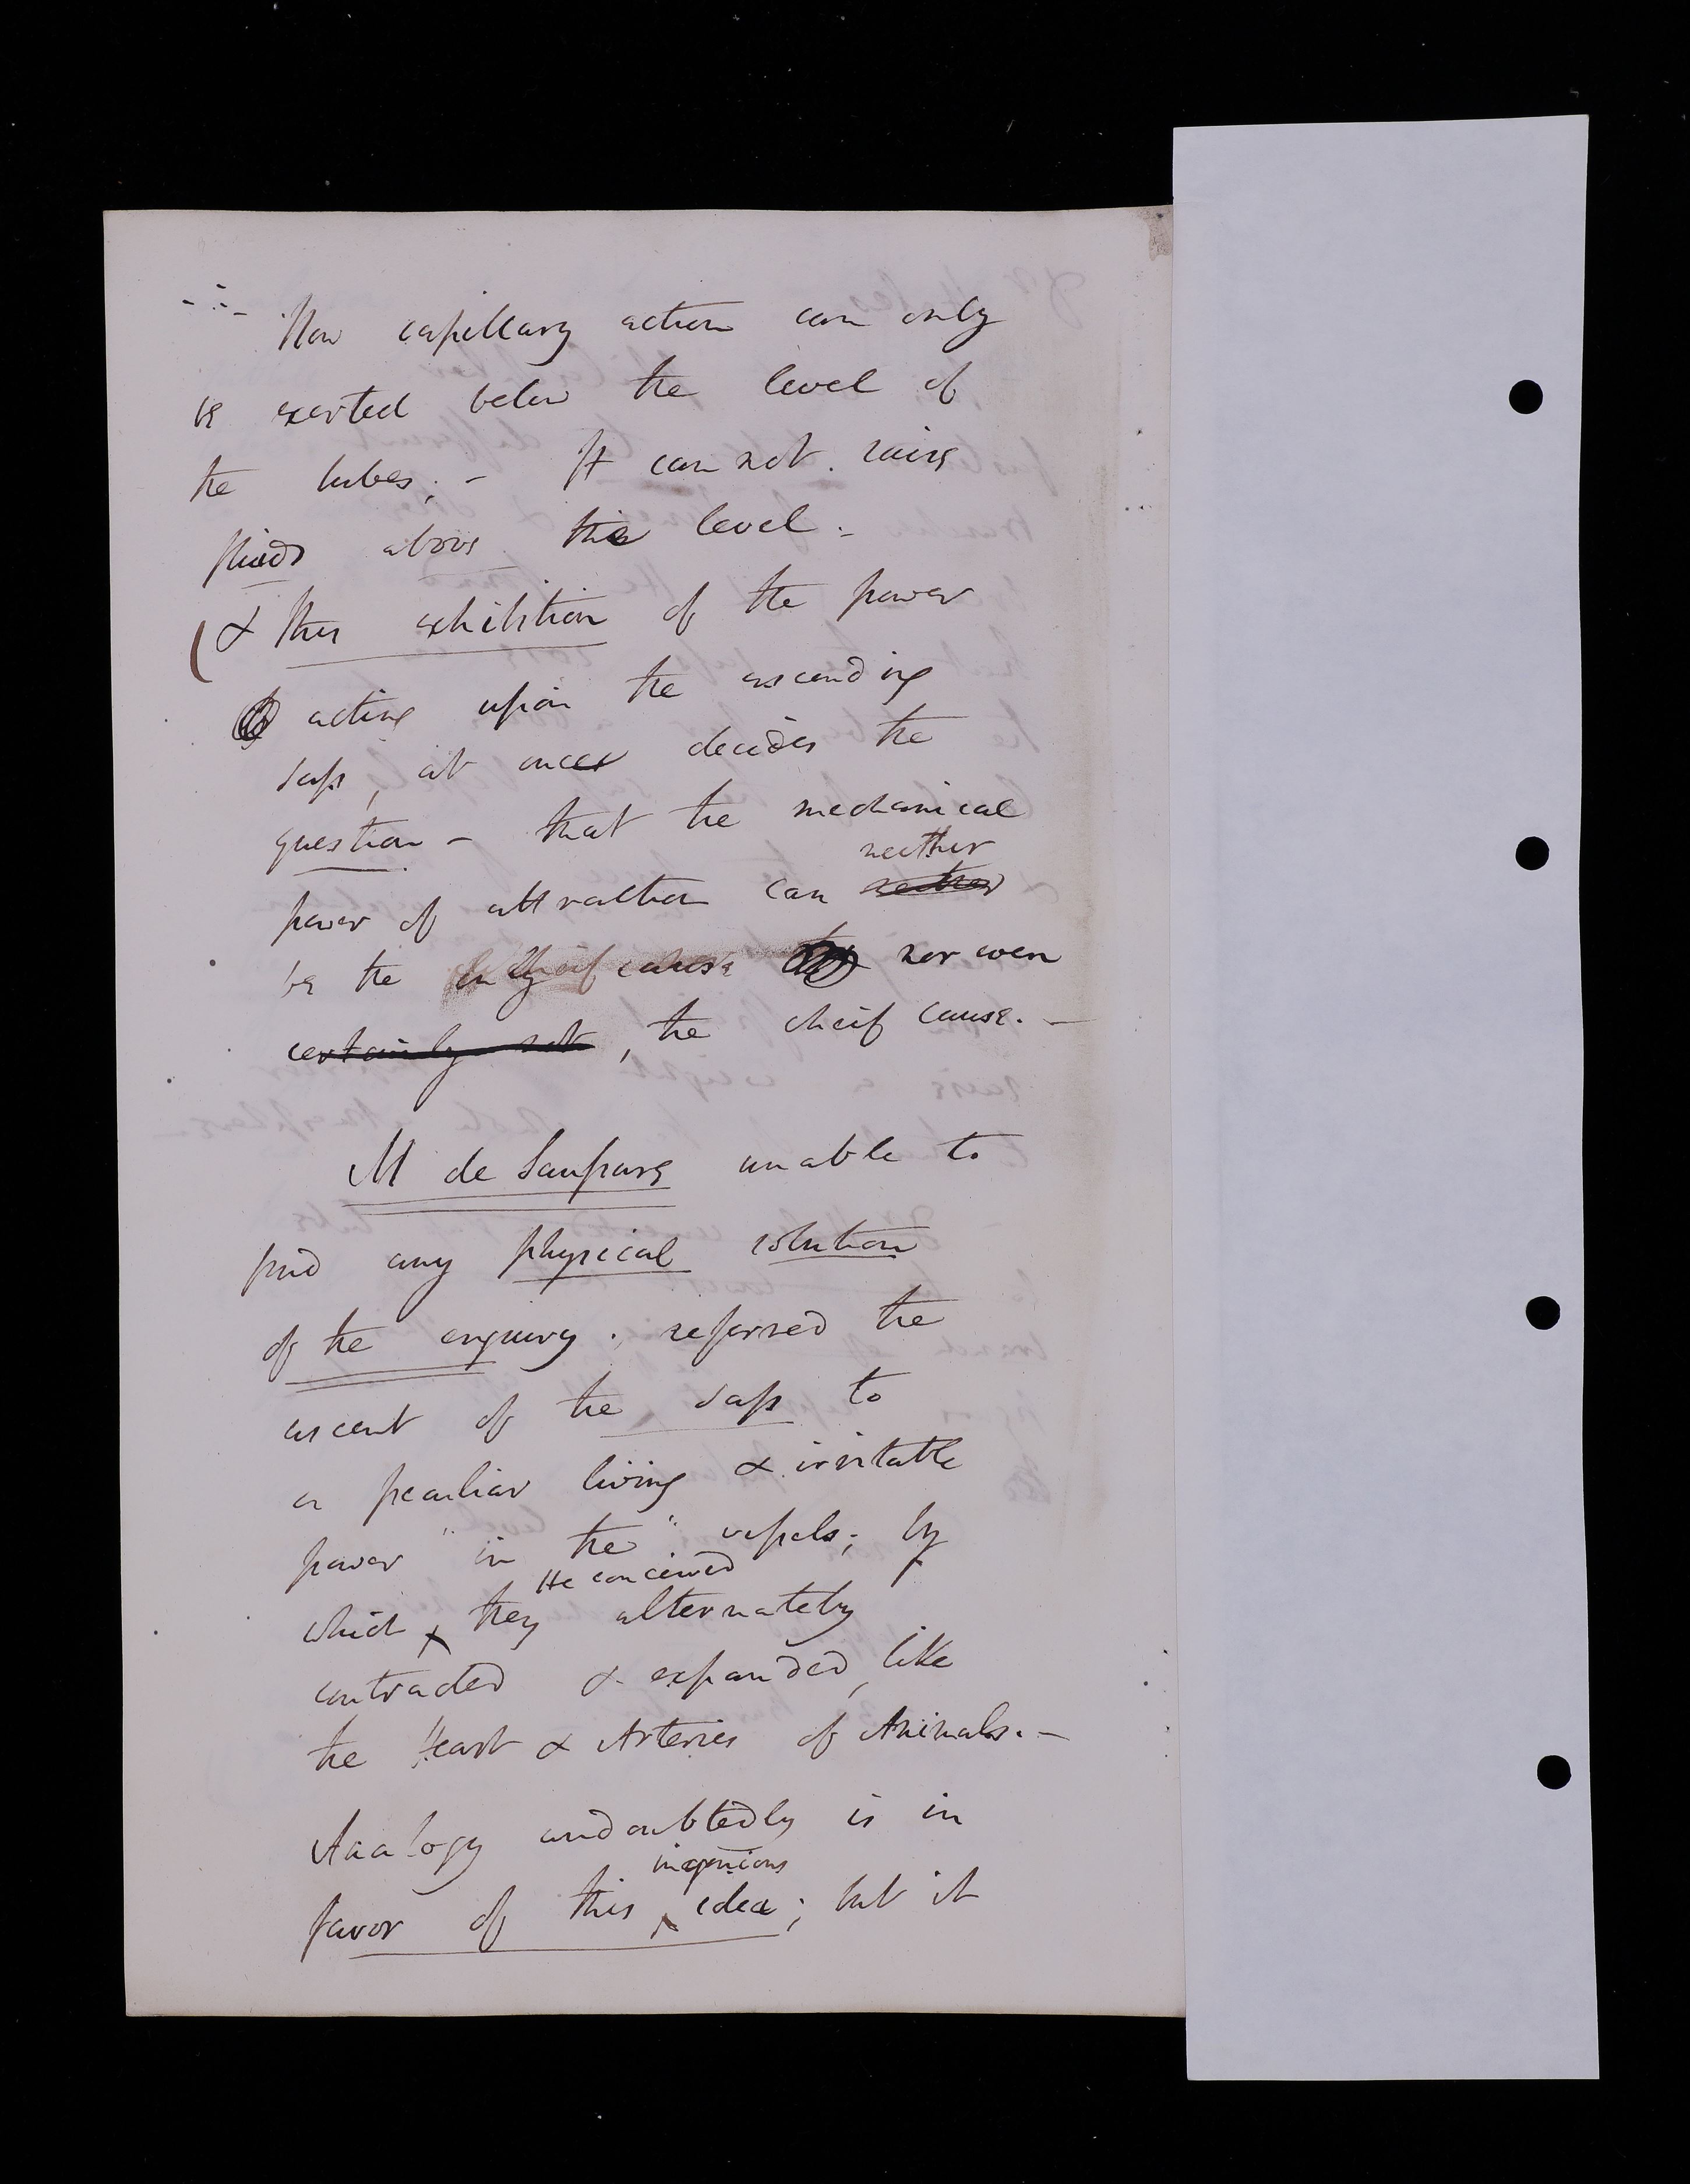 Now capillary action can only
be exerted below the level of
the tubes; - It can not raise
fluids above this level. -
( & this exhibition of the power
acting upon the ascending
sap, at once decides the
question - that the mechanical
neither
power of attraction can neither
be the only cause nor even
certainly not, the cheif cause. -
M de Saussure unable to
find any physical solution
of the enquiry; referred the
ascent of the sap to
a peculiar living & irritable
power "in the" vessels; by
He conceived
which they alternately
contracted & expanded, like
the Heart & Arteries of Animals. -
Analogy undoubtedly is in
ingenious
favor of this idea; but it